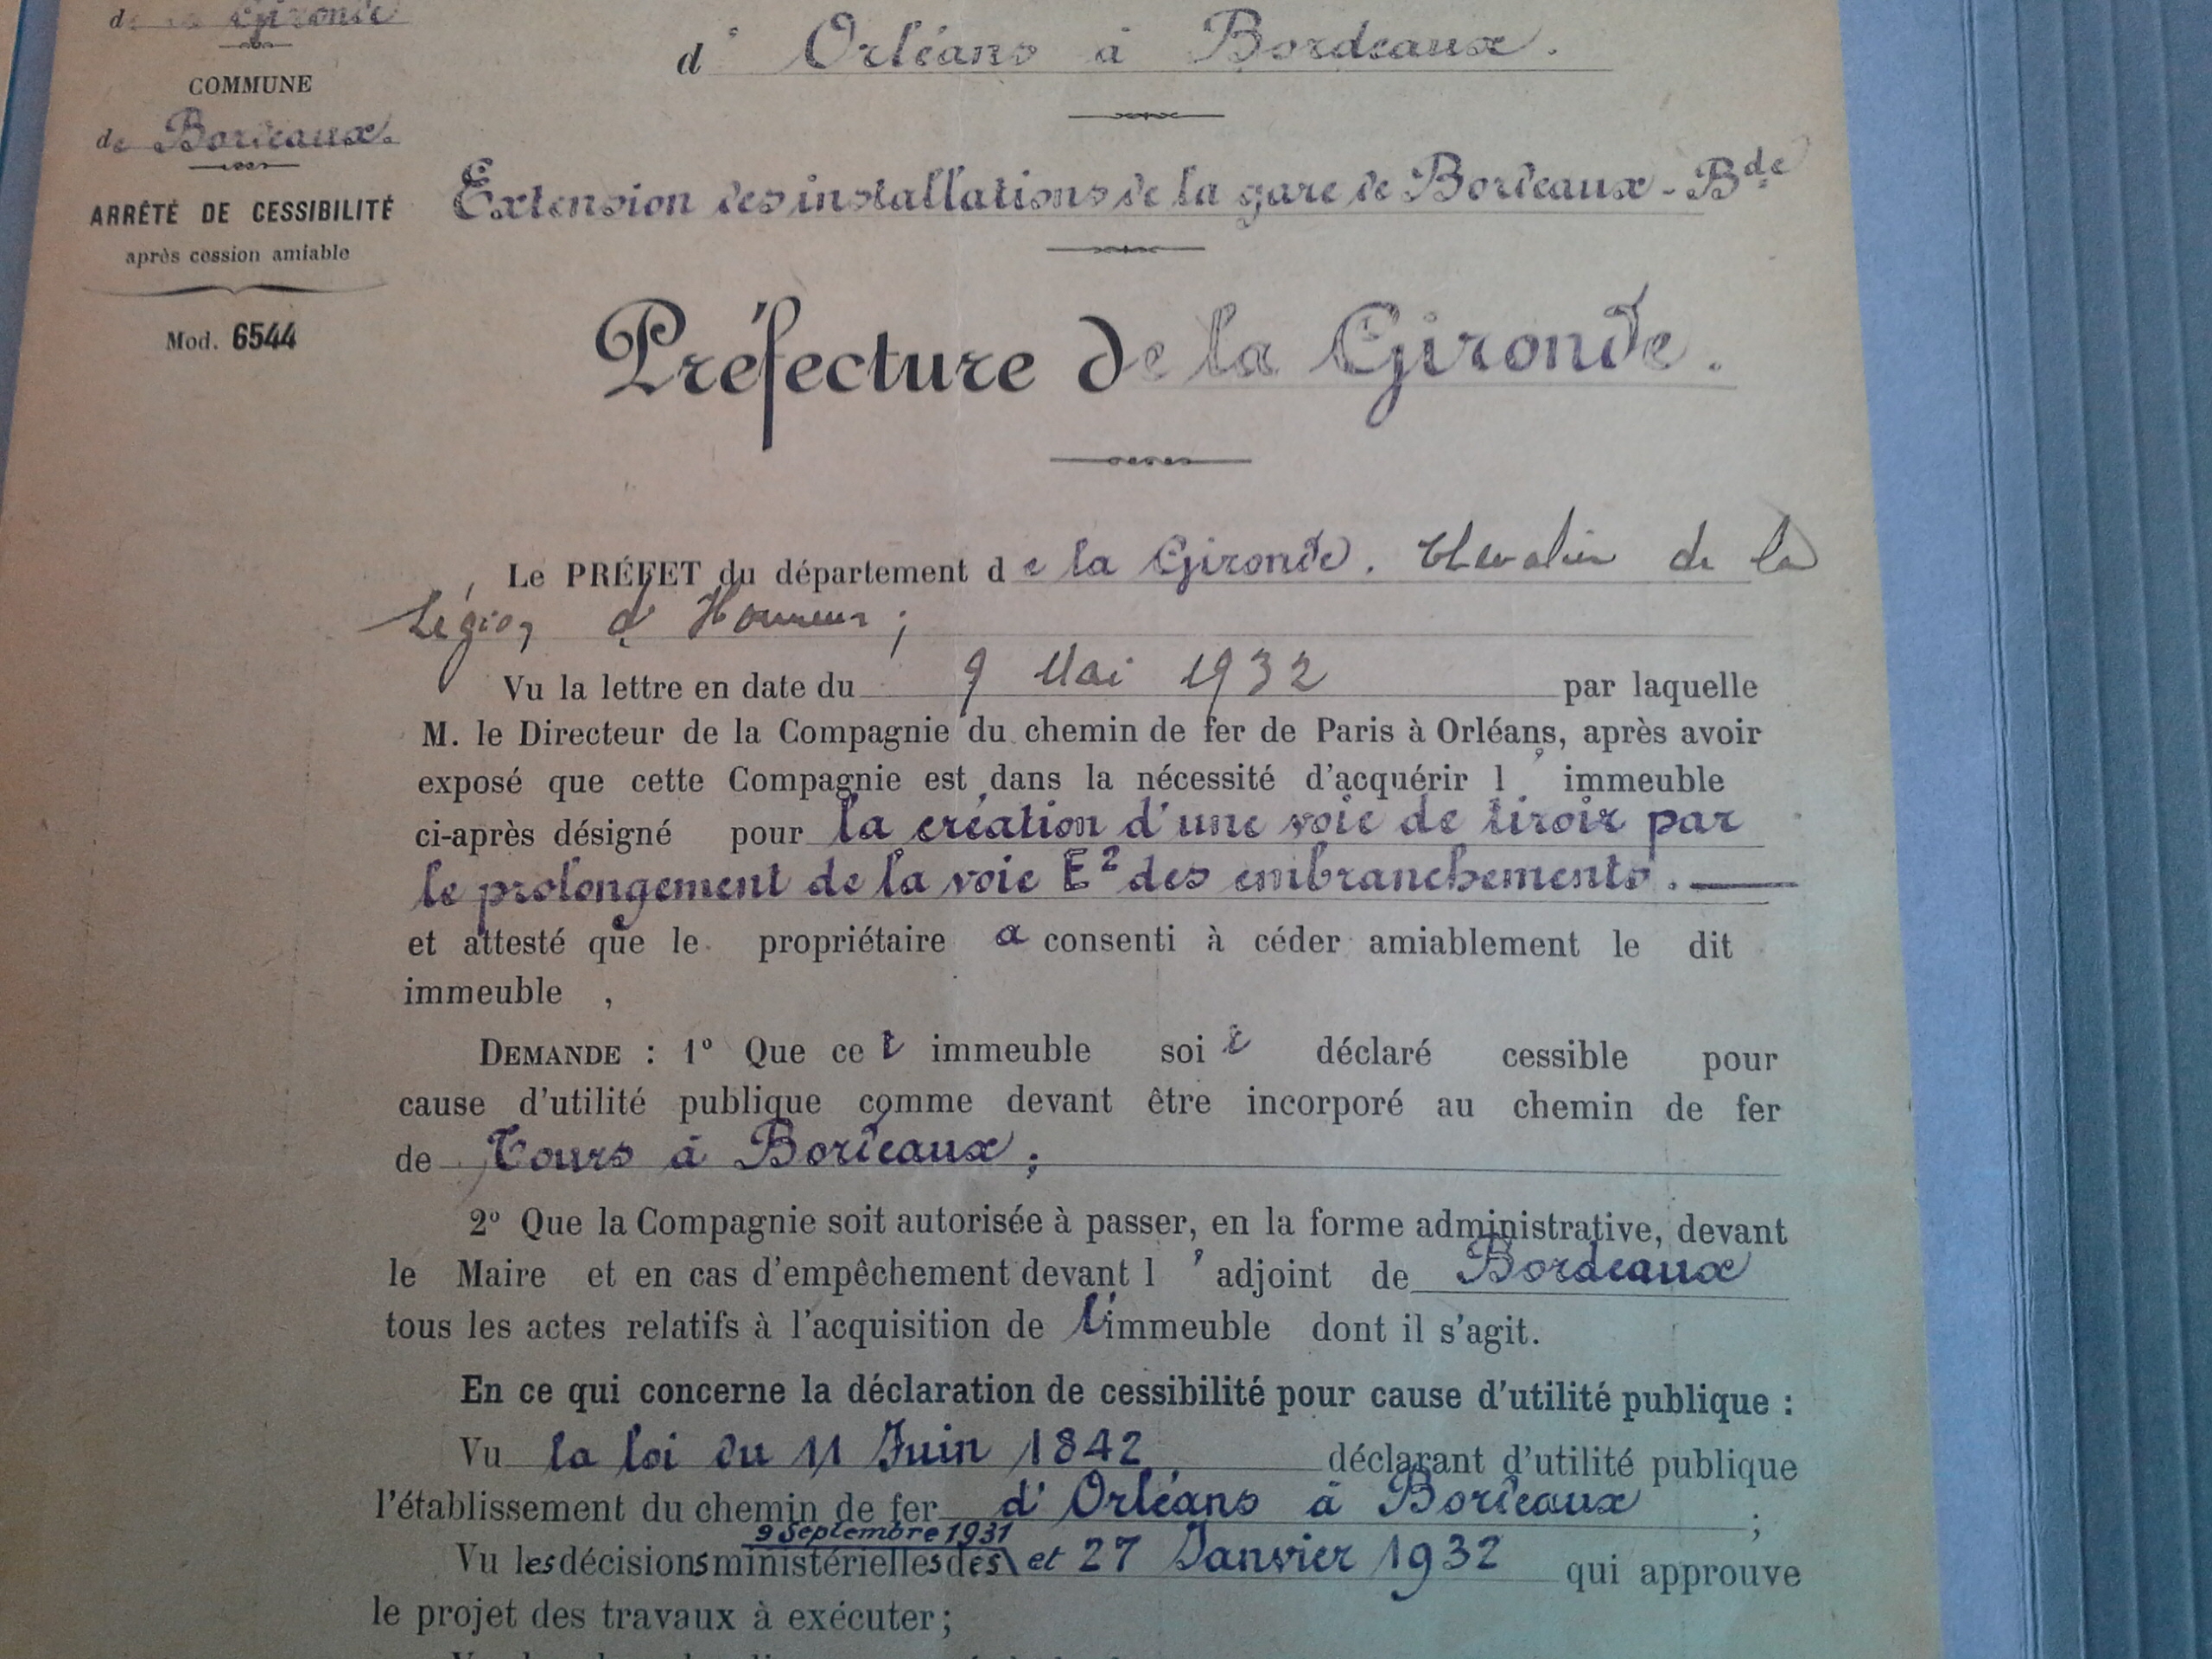 de la Gironde
COMMUNE
de Bordeaux.
ARRÊTÉ DE CESSIBILITÉ
après cession amiable
Mod. 6544
d' Orléans à Bordeaux.
Extension des installations de la gare de Bordeaux - Bde
Préfecture de la Gironde.
Le PRÉFET du département de la Gironde. Chevalier de la
Légion d'Honneur;
Vu la lettre en date du 9 Mai 1932 par laquelle
M. le Directeur de la Compagnie du chemin de fer de Paris à Orléans, après avoir
exposé que cette Compagnie est dans la nécessité d'acquérir l' immeuble
ci-après désigné pour la création d'une voie de tiroir par
le prolongement de la voie E² des embranchements.
et attesté que le propriétaire a consenti à céder amiablement le dit
immeuble ,
DEMANDE : 1º Que cet immeuble soit déclaré cessible pour
cause d'utilité publique comme devant être incorporé au chemin de fer
de Tours à Bordeaux;
2º Que la Compagnie soit autorisée à passer, en la forme administrative, devant
le Maire et en cas d'empêchement devant l'adjoint de Bordeaux
tous les actes relatifs à l'acquisition de l'immeuble dont il s'agit.
En ce qui concerne la déclaration de cessibilité pour cause d'utilité publique :
Vu la loi du 11 Juin 1842 déclarant d'utilité publique
l'établissement du chemin de fer d'Orléans à Bordeaux ;
9 Septembre 1931
Vu les décisions ministérielles des et 27 Janvier 1932 qui approuve
le projet des travaux à exécuter;